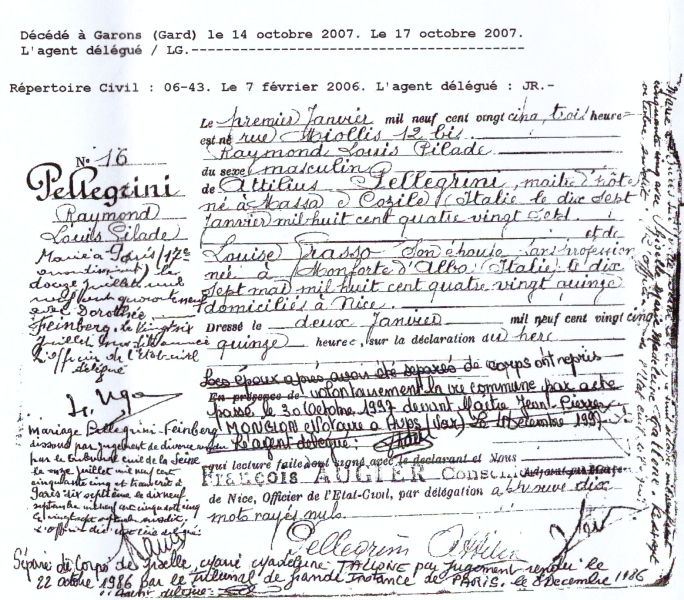 Décédé à Garons (Gard) le 14 octobre 2007. Le 17 octobre 2007.
L'agent délégué / LG.-----------------------------------------
Répertoire Civil : 06-43. Le 7 février 2006. L'agent délégué : JR.-
Le premier Janvier mil neuf cent vingt cinq, trois heure
est né rue Miollis 12 bis
Raymond Louis Pilade
du sexe masculin
de Attilius Pellegrini, maître d'hôte
né à Massa e Cozile (Italie) le dix sept
Janvier mil huit cent quatre vingt sept.
et de
Louise Grasso Son épouse sans profession
née à Monforte d'Alba (Italie) le dix
sept mai mil huit cent quatre vingt quinze
domiciliés à Nice.
Dressé le deux Janvier mil neuf cent vingt cinq
quinze heure, sur la déclaration du père
Les époux après avoir été séparés de corps ont repris
En présence de volontairement la vie commune par acte
passé le 30 Octobre 1997 devant Maître Jean Pierre
MONGION Notaire à Aups (Var) Décembre 1997
L'agent délégué :
qui lecture faite ont signé avec le déclarant et Nous
François AUGIER
de Nice, Officier de l'Etat-Civil, par délégation dix
mots rayés nuls.
Pellegrini Attilio
N° 16
Pellegrini
Raymond
Louis Pilade
Marié à Paris (17e
arrondissement) le
douze juillet mil
neuf cent quarante neuf
avec Dorothée
Feinberg. Le vingt six
juillet
L'officier de l'Etat civil
délégué
Mariage Pellegrini-Feinberg
dissous par jugement de divorce rendu
par le tribunal civil de la Seine
le onze juillet mil neuf cent
cinquante cinq et transcrit à
Paris dix septième le dix neuf
septembre mil neuf cent cinquante cinq
L'officier
Séparé de Corps de Giselle Marie Madeleine TALLONE par Jugement rendu le
22 octobre 1986 par le Tribunal de Grande Instance de PARIS. le 8 Décembre 1986
L'Agent délégué :